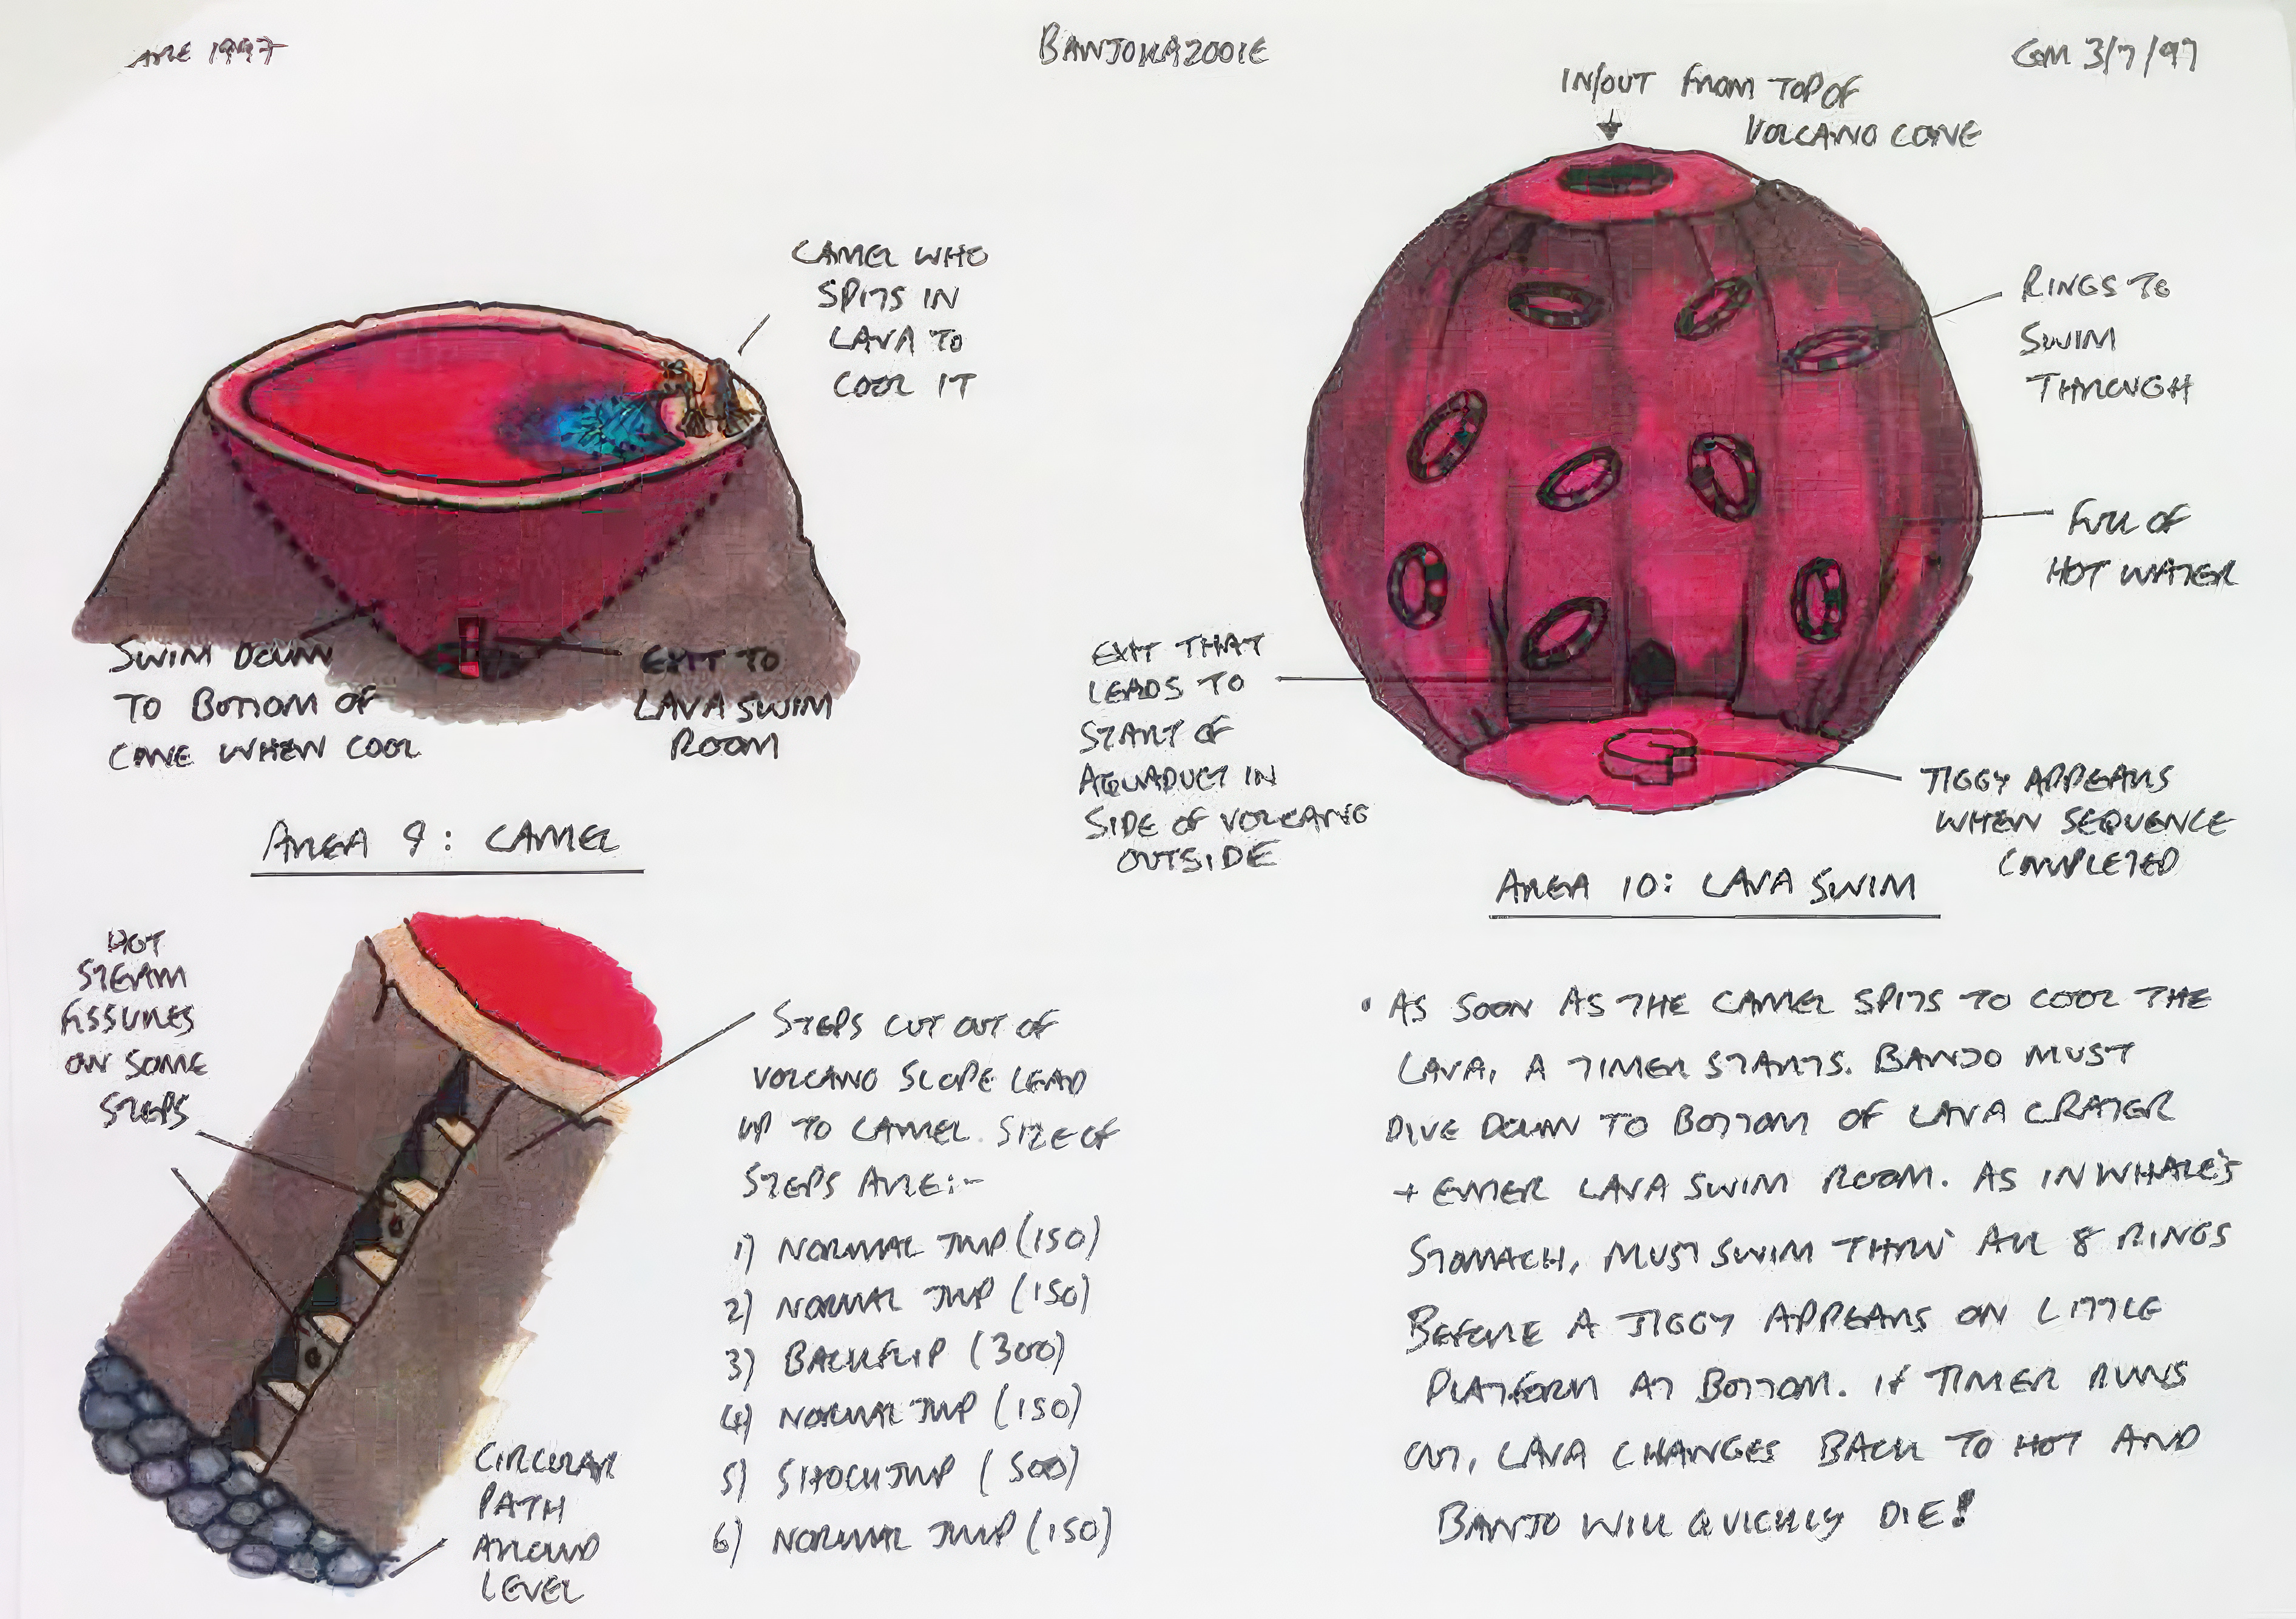 ARE 1997
BANJOKAZOOIE
GM 3/7/97
CAMEL WHO
SPITS IN
LAVA TO
COOL IT
SWIM DOWN
TO BOTTOM OF
CONE WHEN COOL
EXIT TO
LAVA SWIM
ROOM
AREA 9: CAMEL
IN/OUT FROM TOP OF
VOLCANO CONE
RINGS TO
SWIM
THROUGH
FULL OF
HOT WATER
EXIT THAT
LEADS TO
START OF
AQUADUCT IN
SIDE OF VOLCANO
OUTSIDE
JIGGY APPEARS
WHEN SEQUENCE
COMPLETED
AREA 10: LAVA SWIM
HOT
STEAM
FISSURES
ON SOME
STEPS
STEPS CUT OUT OF
VOLCANO SLOPE LEAD
UP TO CAMEL. SIZE OF
STEPS ARE:-
1) NORMAL JUMP (150)
2) NORMAL JUMP (150)
3) BACKFLIP (300)
4) NORMAL JUMP (150)
5) SHOCKJUMP (500)
6) NORMAL JUMP (150)
CIRCULAR
PATH
AROUND
LEVEL
• AS SOON AS THE CAMEL SPITS TO COOL THE
LAVA, A TIMER STARTS. BANJO MUST
DIVE DOWN TO BOTTOM OF LAVA CRATER
+ ENTER LAVA SWIM ROOM. AS IN WHALE'S
STOMACH, MUST SWIM THRU' ALL 8 RINGS
BEFORE A JIGGY APPEARS ON LITTLE
PLATFORM AT BOTTOM. IF TIMER RUNS
OUT, LAVA CHANGES BACK TO HOT AND
BANJO WILL QUICKLY DIE!